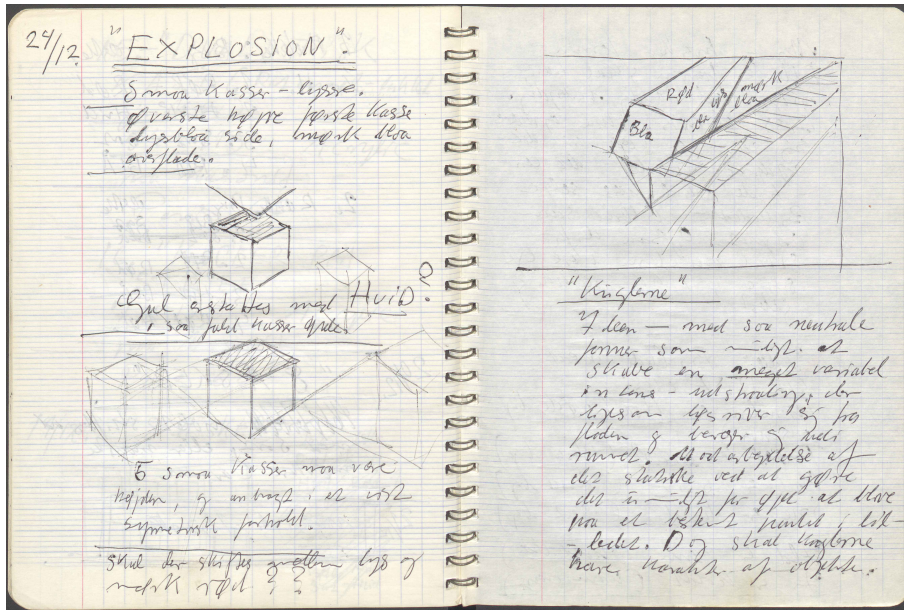 24/12
"EXPLOSION".
Smaa Kasser – lysere.
Øverste højre første Kasse
lysblaa side, mørk blaa
overflade.
Gul erstattes med HVID?
saa fuld kasser
5 smaa Kasser maa være
højden, og anbragt i et vist
symmetrisk forhold.
skal der skiftes mellem lys og
mørk rød ? ?
Rød
lys
bla
mørk
blaa
Bla
"Kuglerne"
Ideen – med saa neutrale
former som muligt at
skabe en meget variabel
intens – udstraaling, der
ligesom river sig fra
fladen og bevæger sig ud i
rummet. Modarbejdelse af
det statiske ved at gøre
det umuligt for øjet at blive
paa et bestemt punkt i bil-
-ledet. Dog skal kuglerne
have karakter af objekter.